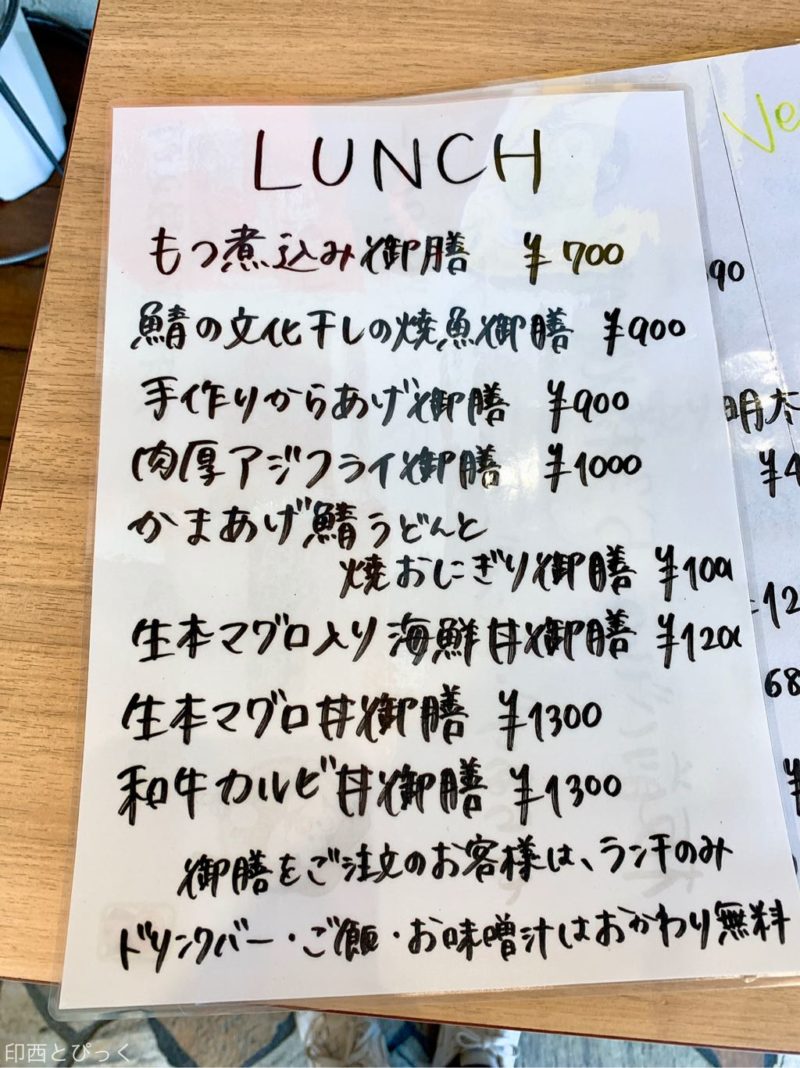 LUNCH
もつ煮込み御膳 ¥700
鯖の文化干しの焼魚御膳 ¥900
手作りからあげ御膳 ¥900
肉厚アジフライ御膳 ¥1000
かまあげ鯖うどんと
焼おにぎり御膳 ¥100
生本マグロ入り海鮮丼御膳 ¥120
生本マグロ丼御膳 ¥1300
和牛カルビ丼御膳 ¥1300
御膳をご注文のお客様は、ランチのみ
ドリンクバー・ご飯・お味噌汁はおかわり無料
Ve
90
明太
¥4
12
68
¥
印西とぴっく